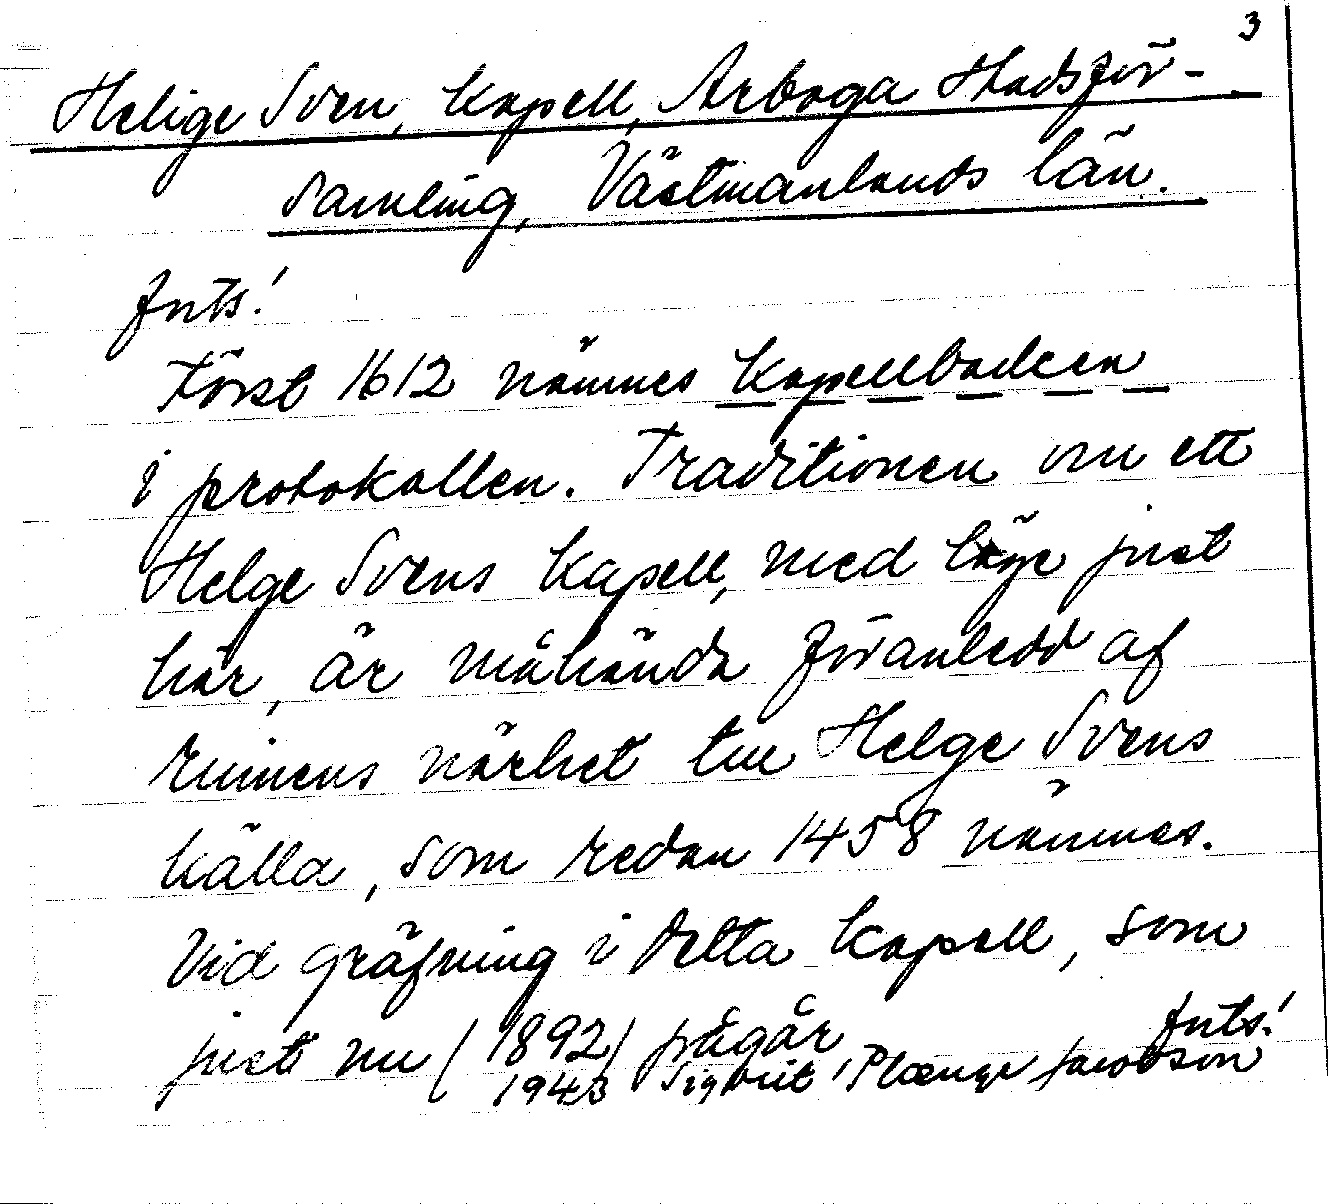 3
Helige Sven, Kapell, Arboga Stadsför-
samling, Västmanlands län.
forts!
Först 1612 nämnes Kapellbacken
i protokollen. Traditionen om ett
Helge Svens Kapell, med läge just
här, är måhända föranledd af
ruinens närhet till Helge Svens
källa, som redan 1458 nämnes.
Vid gräfning i detta Kapell, som
just nu (1892) pågår forts!
1943 Sigbrit Plænge Jacobson